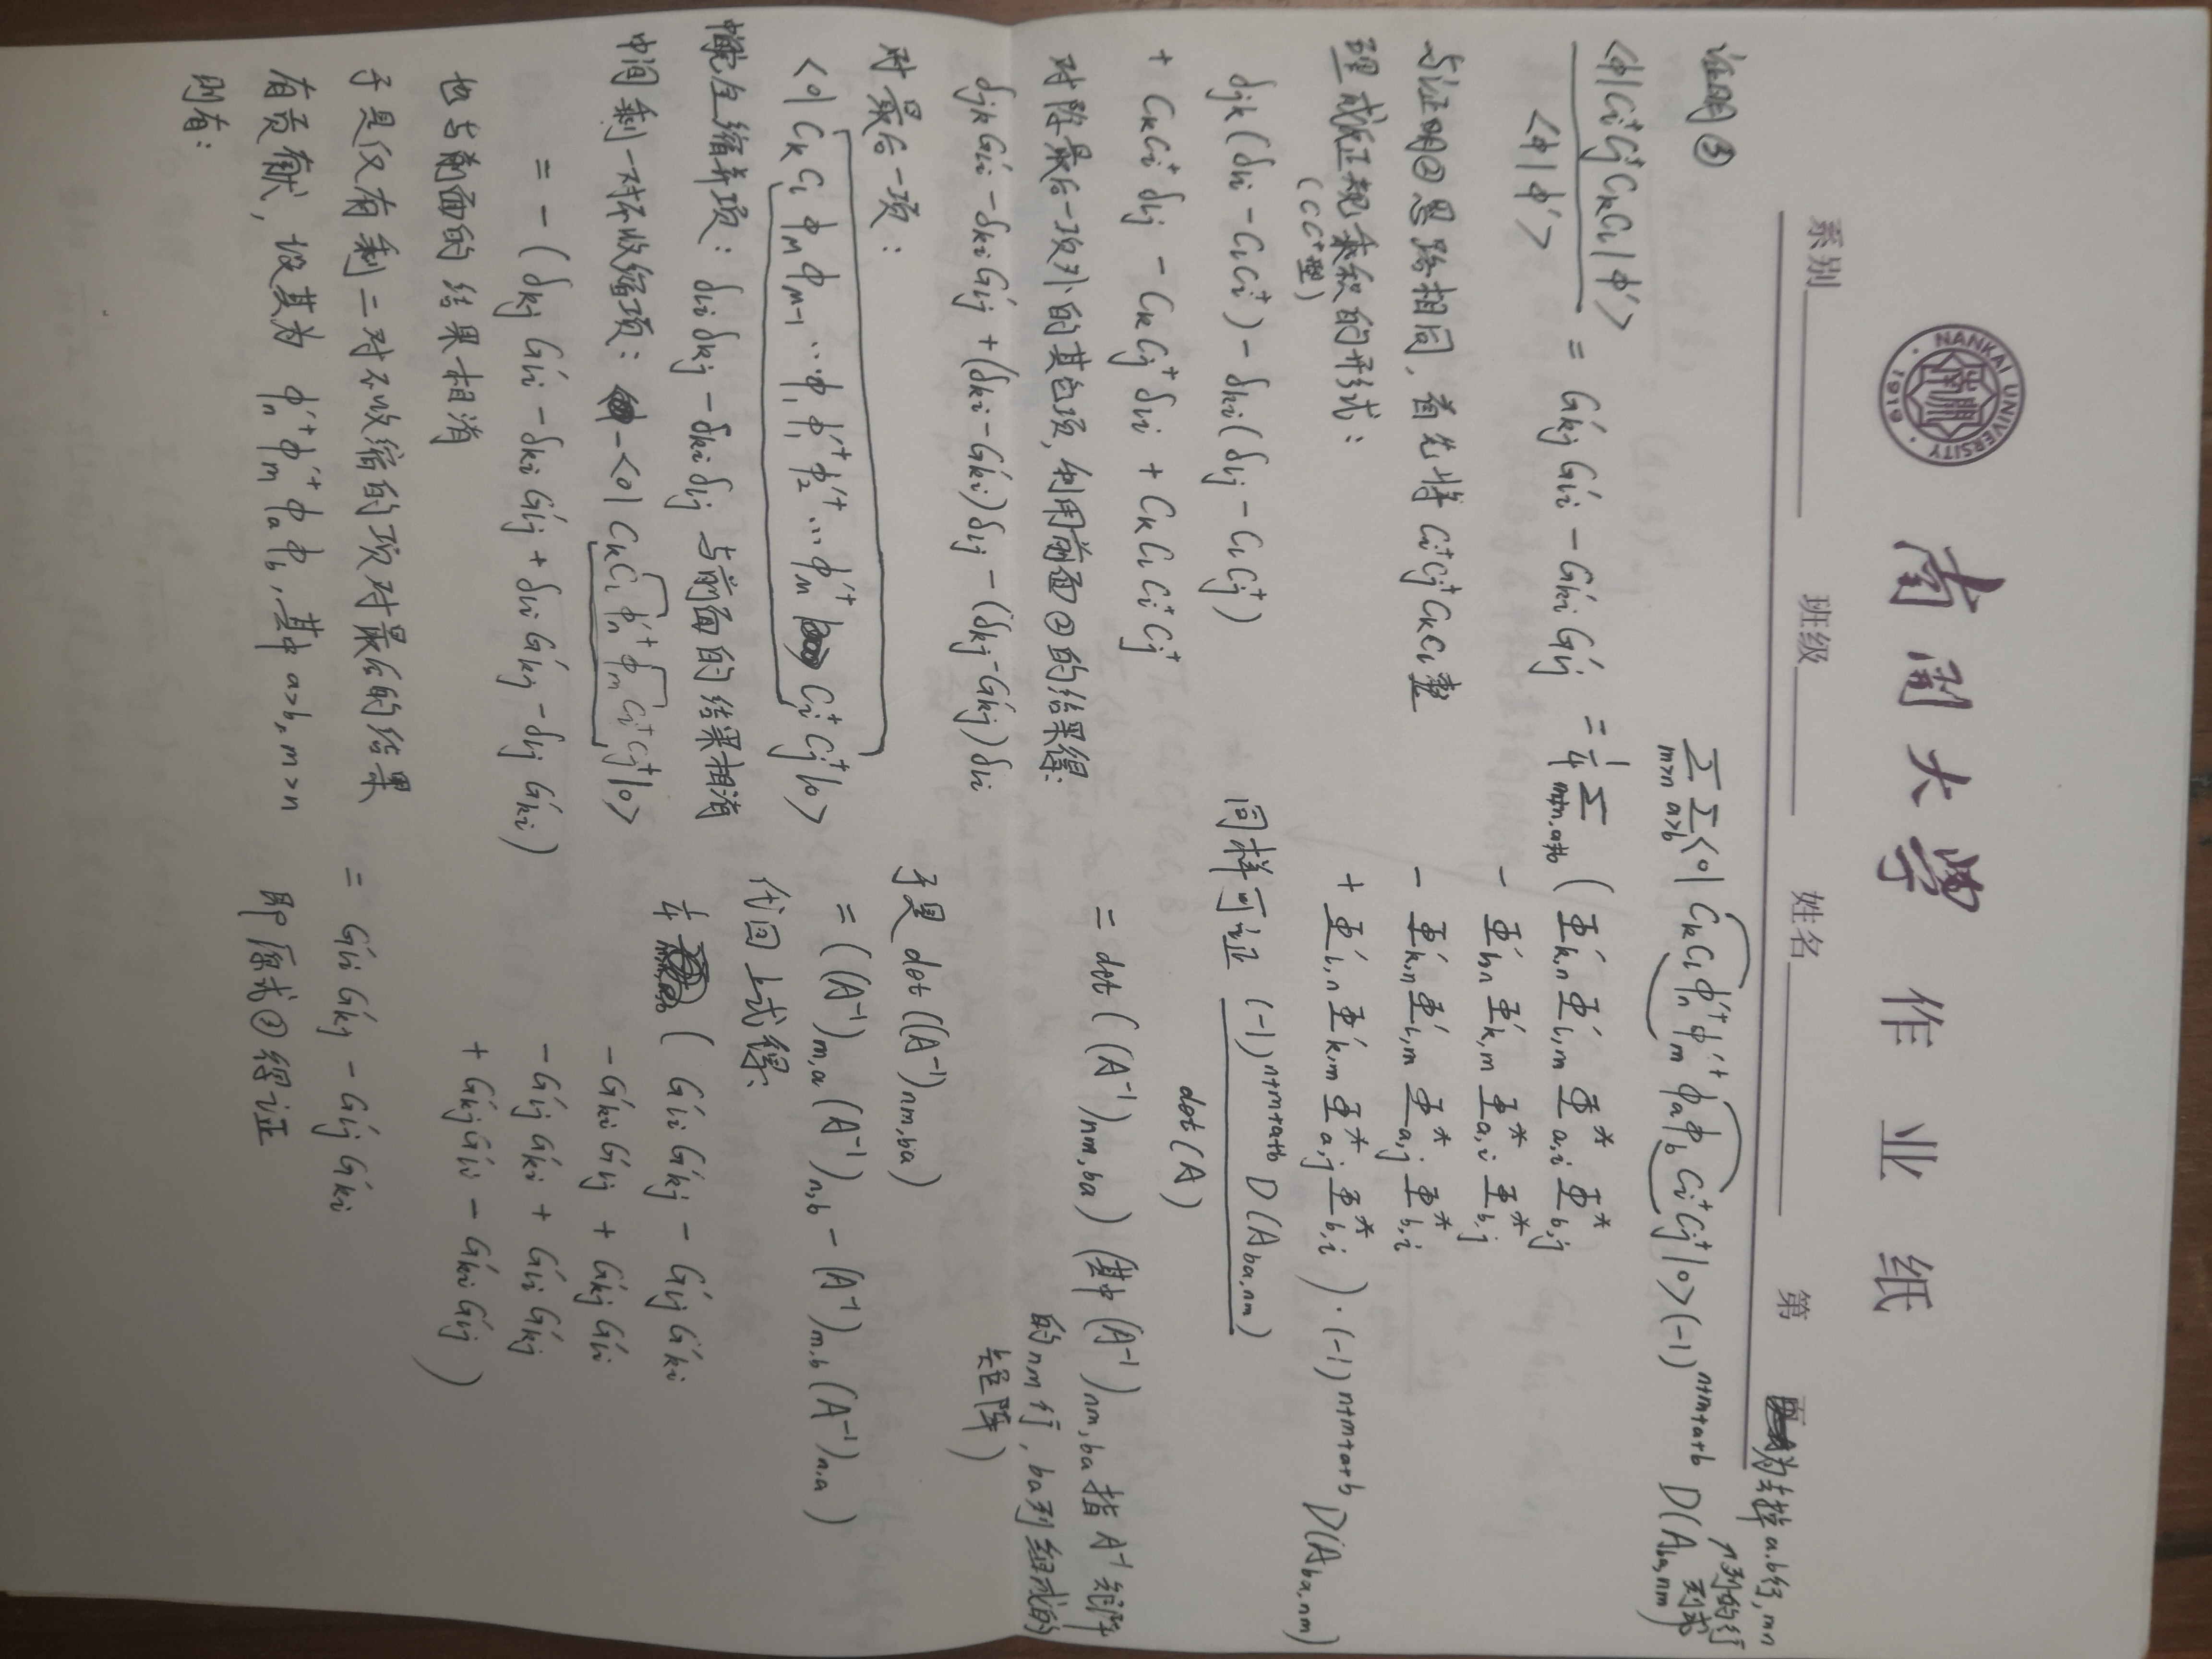 NANKAI UNIVERSITY
南開
1919
南開大學 作业纸
系别 班级 姓名 第 页
证明③
<φ|Ci⁺Cj⁺CkCl|φ'> / <φ|φ'> = G'kj G'li − G'ki G'lj
与证明②思路相同,首先将 Ci⁺Cj⁺CkCl 整
理成反正规乘积的形式:
(CC⁺型)
δjk(δli − ClCi⁺) − δki(δlj − ClCj⁺)
+ CkCi⁺δlj − CkCj⁺δli + CkClCi⁺Cj⁺
对除最后一项外的其它项,利用前面②的结果得:
δjkG'li − δkiG'lj + (δki − G'ki)δlj − (δkj − G'kj)δli
对最后一项:
<0|CkCl φM φM−1 ⋯ φ1 φ1'⁺ φ2'⁺ ⋯ φM'⁺ Ci⁺Cj⁺|0>
完全缩并项: δliδkj − δkiδlj 与前面的结果相消
中间剩一对不收缩项: −<0|CkCl φn'⁺ φm Ci⁺Cj⁺|0>
= −(δkj G'li − δki G'lj + δli G'kj − δlj G'ki)
也与前面的结果相消
于是仅有剩二对不收缩的项对最后的结果
有贡献,设其为 φn'⁺φm'⁺φaφb,其中 a>b, m>n
则有:
为去掉 a.b行, mn
↗列的行
列式
Σm>n Σa>b <0|CkCl φn'⁺φm'⁺φaφb Ci⁺Cj⁺|0> (−1)^(n+m+a+b) D(Aba,nm)
= 1/4 Σm≠n,a≠b ( Φ'k,n Φ'l,m Φ*a,i Φ*b,j
− Φ'l,n Φ'k,m Φ*a,i Φ*b,j
− Φ'k,n Φ'l,m Φ*a,j Φ*b,i
+ Φ'l,n Φ'k,m Φ*a,j Φ*b,i ) · (−1)^(n+m+a+b) D(Aba,nm)
同样可证 (−1)^(n+m+a+b) D(Aba,nm) / det(A)
= det((A⁻¹)nm,ba) (其中(A⁻¹)nm,ba指A⁻¹矩阵
的nm行,ba列组成的
矩阵)
于是 det((A⁻¹)nm,ba)
= ((A⁻¹)m,a (A⁻¹)n,b − (A⁻¹)m,b (A⁻¹)n,a)
代回上式得:
1/4 ( G'li G'kj − G'lj G'ki
− G'ki G'lj + G'kj G'li
− G'lj G'ki + G'li G'kj
+ G'kj G'li − G'ki G'lj )
= G'li G'kj − G'lj G'ki
即原式③得证